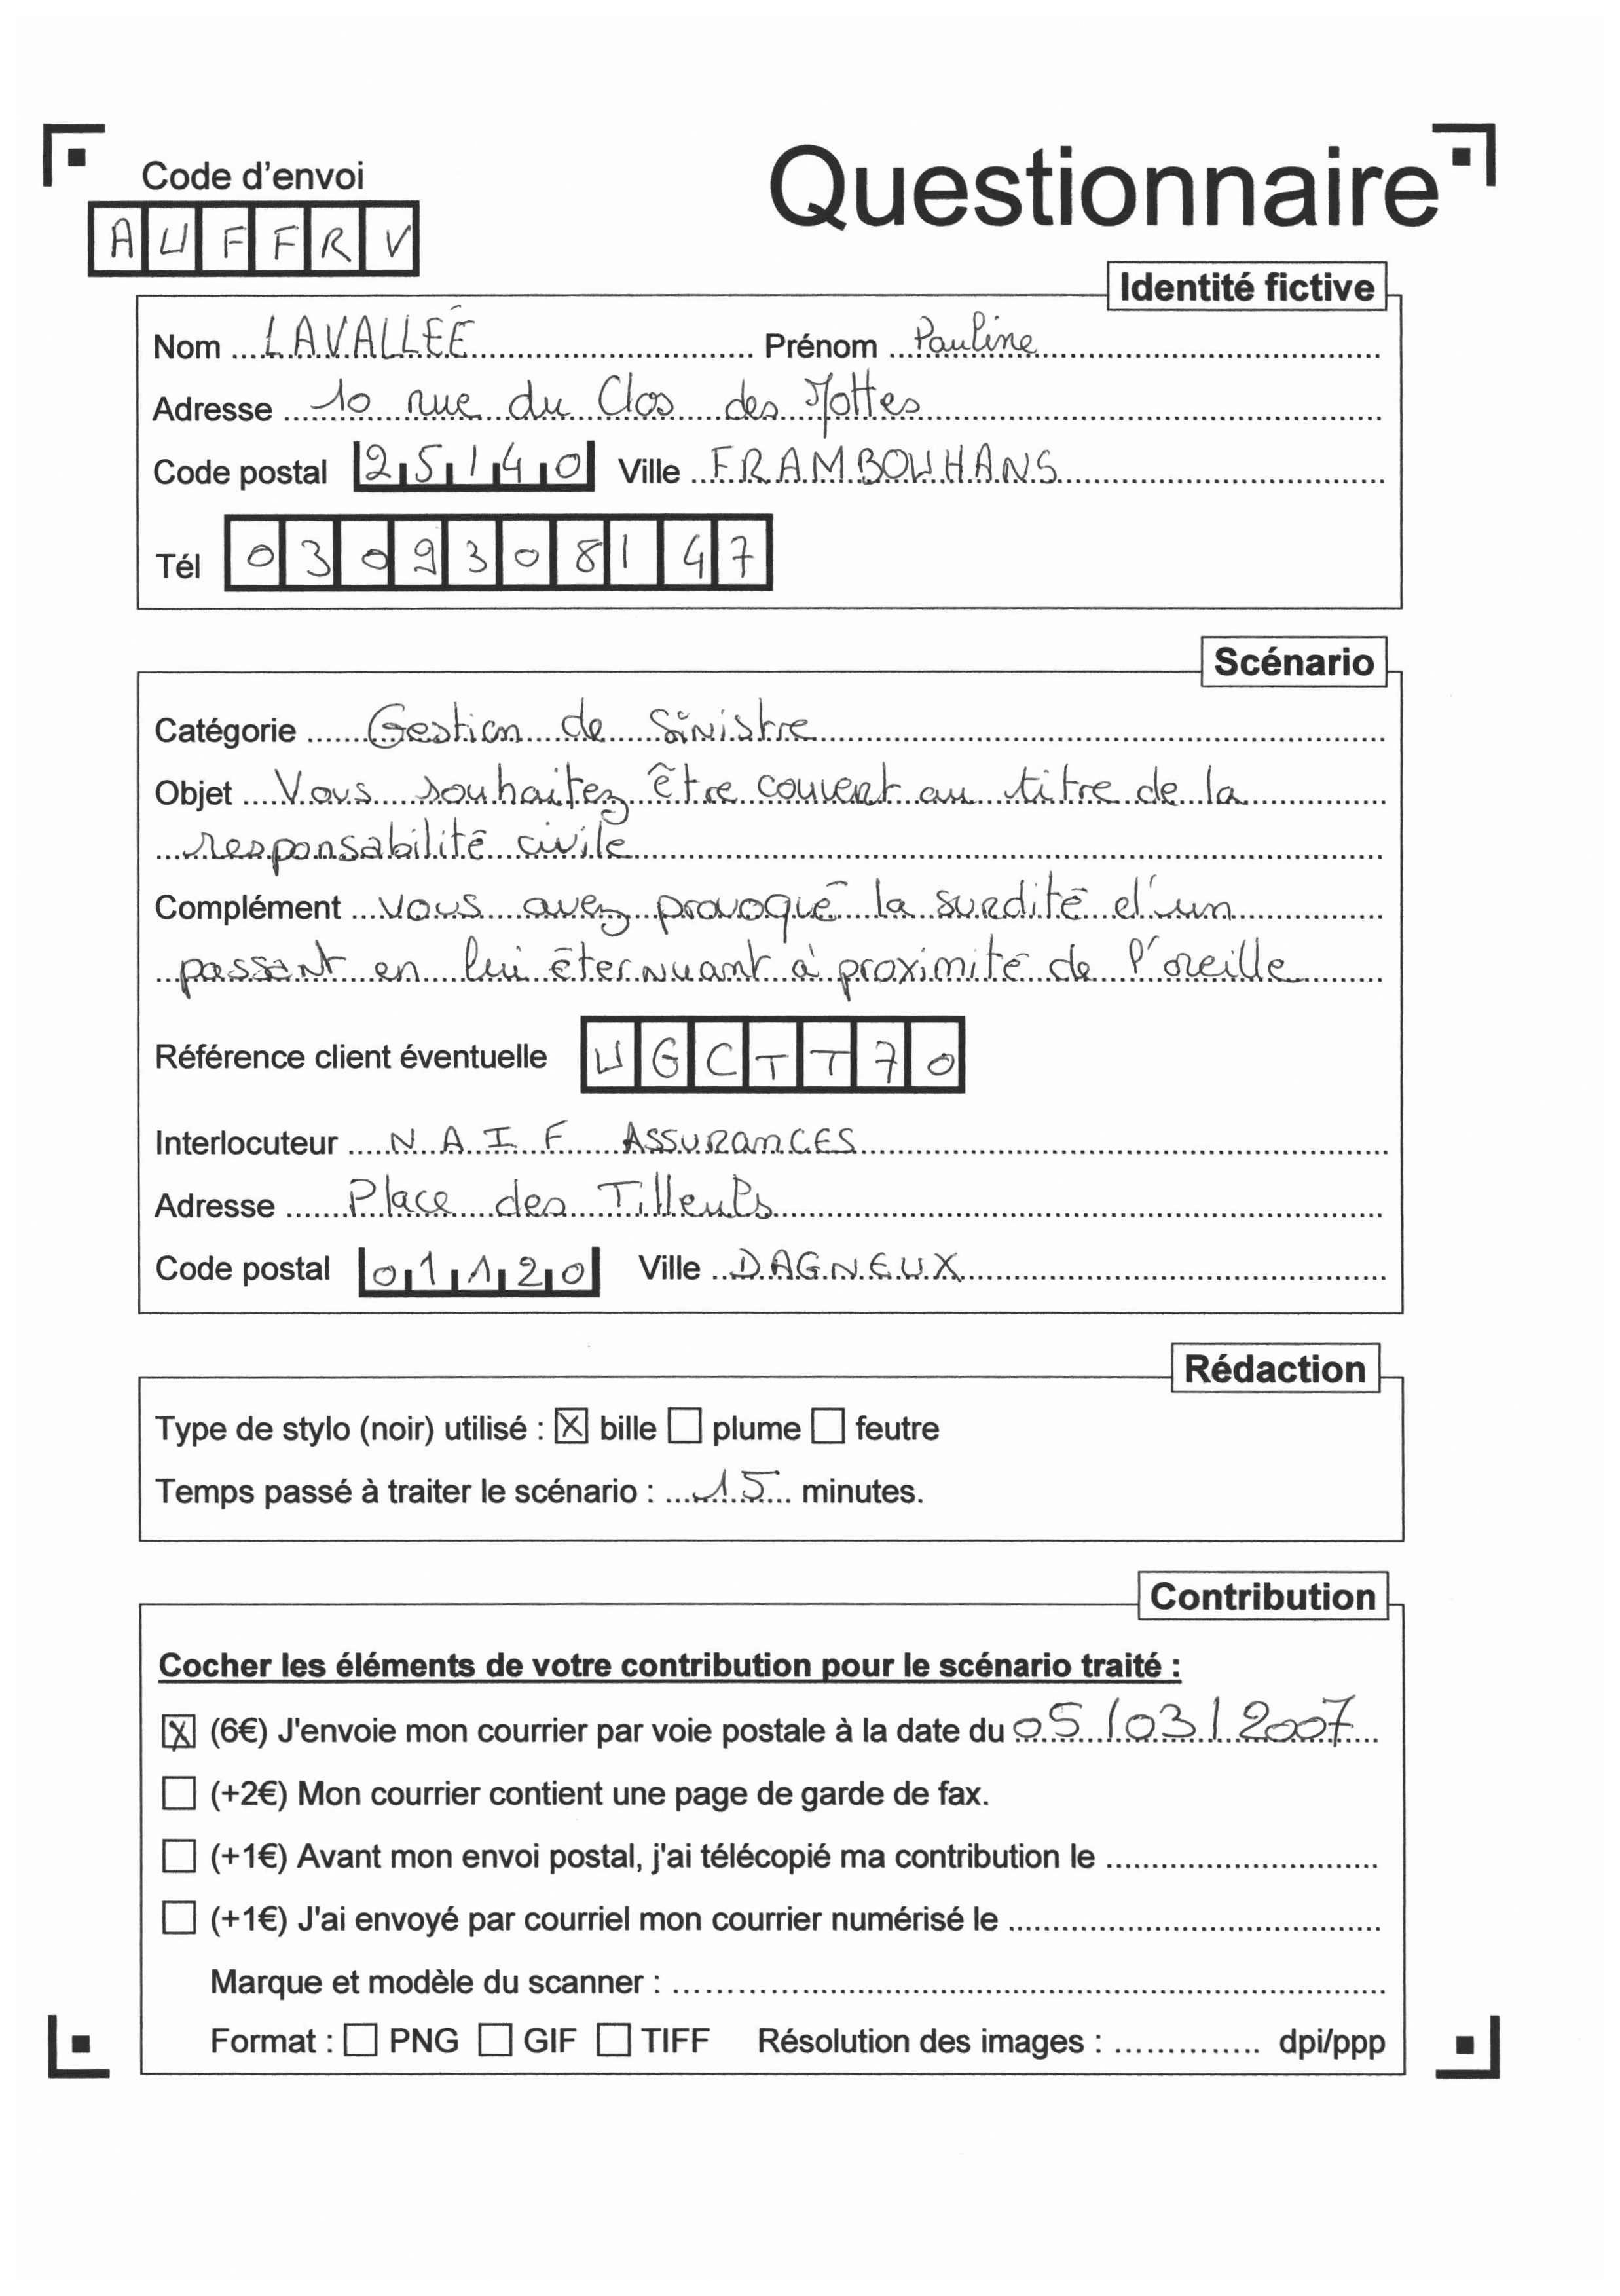 Code d'envoi
Questionnaire
AUFFRV
Identité fictive
Nom LAVALLÉE Prénom Pauline
Adresse 10 rue du Clos des Mottes
Code postal 25140 Ville FRAMBOUHANS
Tél 0309308147
Scénario
Catégorie Gestion de Sinistre
Objet Vous souhaitez être couvert au titre de la
responsabilité civile
Complément vous avez provoqué la surdité d'un
passant en lui éternuant à proximité de l'oreille
Référence client éventuelle UGCTT70
Interlocuteur N.A.I.F Assurances
Adresse Place des Tilleuls
Code postal 01120 Ville DAGNEUX
Rédaction
Type de stylo (noir) utilisé : ☒ bille ☐ plume ☐ feutre
Temps passé à traiter le scénario : 15 minutes.
Contribution
Cocher les éléments de votre contribution pour le scénario traité :
☒ (6€) J'envoie mon courrier par voie postale à la date du 05/03/2007
☐ (+2€) Mon courrier contient une page de garde de fax.
☐ (+1€) Avant mon envoi postal, j'ai télécopié ma contribution le
☐ (+1€) J'ai envoyé par courriel mon courrier numérisé le
Marque et modèle du scanner :
Format : ☐ PNG ☐ GIF ☐ TIFF Résolution des images : dpi/ppp